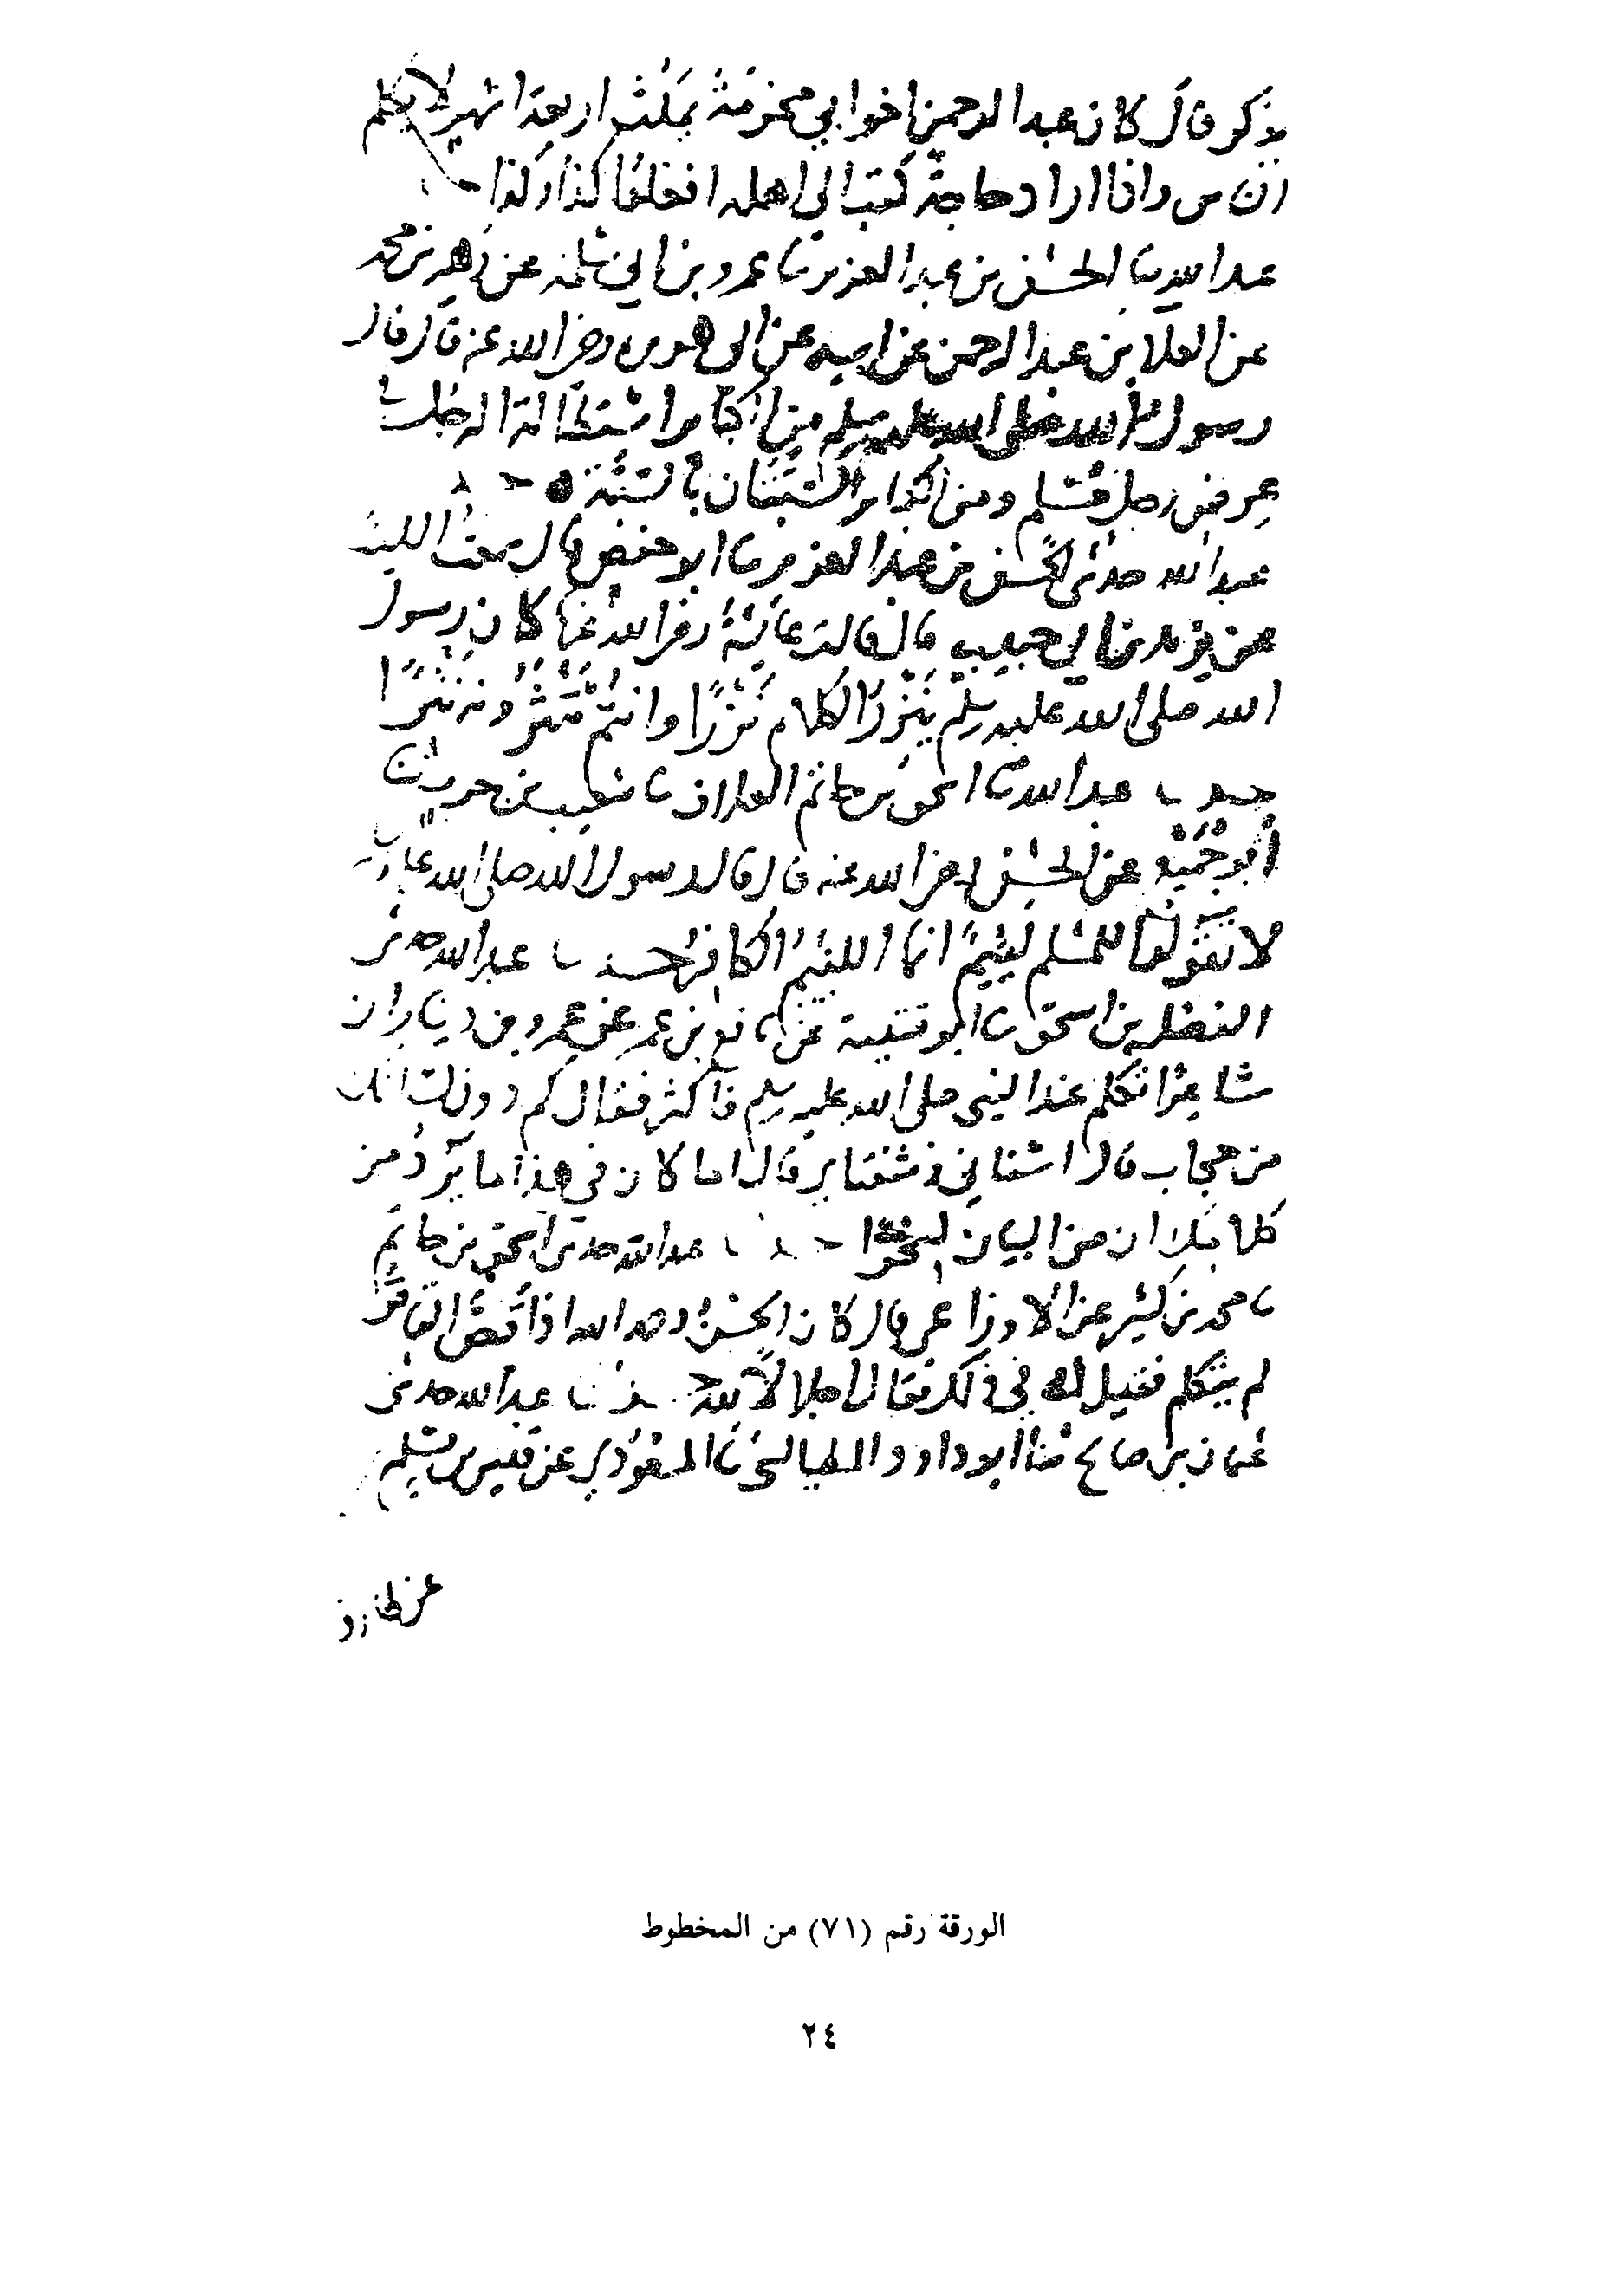 يذكر قال كان عبد الرحمن اخو ابي مخرمة يمكث اربعة اشهر لا يكلم
الناس واذا اراد حاجة كتب الى اهله افعلوا كذا وكذا
عبد الله نا الحسن بن عبد العزيز نا عمرو بن ابي سلمة عن زهير بن محمد
عن العلا بن عبد الرحمن عن ابيه عن ابي هريرة رضي الله عنه قال قال
رسول الله صلى الله عليه وسلم من اكبر استطالة الرجل في
عرض رجل مسلم ومن الكبائر السبتان بالسبة
عبد الله حدثني الحسن بن عبد العزيز نا ابو حفص قال سمعت الليث
عن يزيد بن ابي حبيب قال قالت عائشة رضي الله عنها كان رسول
الله صلى الله عليه وسلم ينزر الكلام نزرًا وانتم تنثرونه نثرًا
عبد الله نا اسحق بن حاتم العلاف نا شعيب بن حرب نا
ابو جميع عن الحسن رضي الله عنه قال قال رسول الله صلى الله عليه
لا تقولوا للمسلم لئيم انما اللئيم الكافر نا عبد الله حدثني
الفضل بن اسحق نا ابو قتيبة عن نافع بن عمر عن عمرو بن دينار ان
شاعرا تكلم عند النبي صلى الله عليه وسلم فاكثر فقال كم دون لسانك
من حجاب قال اسناني وشفتاي قال اما كان في هذا ما يرد من
كلامك ان من البيان لسحرا عبد الله حدثني اسحق بن حاتم
نا محمد بن كثير عن الاوزاعي قال كان الحسن رحمه الله اذا قص القاص
لم يتكلم فقيل له في ذلك فقال اجلالا لله نا عبد الله حدثني
عثمان بن صالح ثنا ابو داود الطيالسي نا المسعودي عن قيس بن مسلم
عن طارق
الورقة رقم (٧١) من المخطوط
٢٤